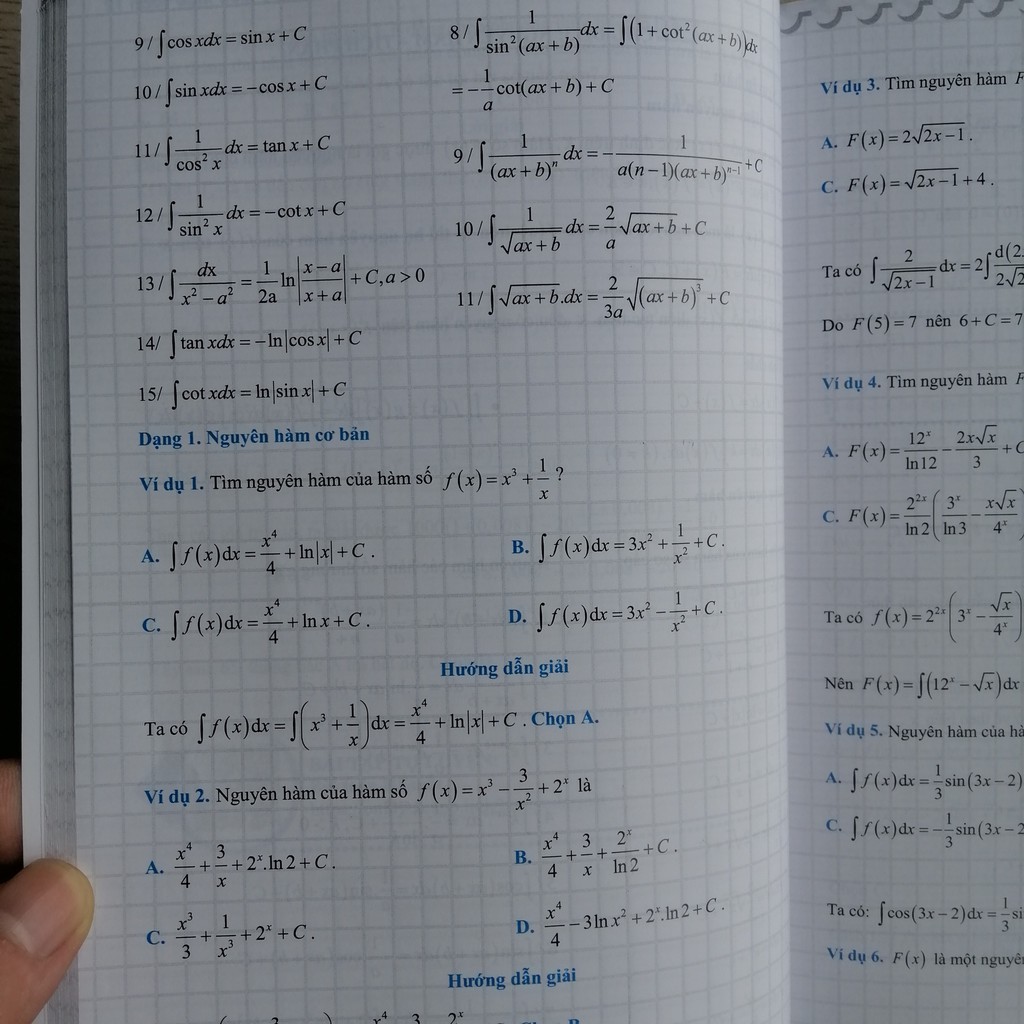 9/ ∫cos xdx = sin x + C
10/ ∫sin xdx = −cos x + C
11/ ∫ 1/cos² x dx = tan x + C
12/ ∫ 1/sin² x dx = −cot x + C
13/ ∫ dx/(x² − a²) = 1/2a ln|(x − a)/(x + a)| + C, a > 0
14/ ∫tan xdx = −ln|cos x| + C
15/ ∫cot xdx = ln|sin x| + C
8/ ∫ 1/sin²(ax + b) dx = ∫(1 + cot²(ax + b))dx
= −1/a cot(ax + b) + C
9/ ∫ 1/(ax + b)ⁿ dx = − 1/(a(n − 1)(ax + b)ⁿ⁻¹) + C
10/ ∫ 1/√(ax + b) dx = 2/a √(ax + b) + C
11/ ∫√(ax + b).dx = 2/3a √((ax + b)³) + C
Dạng 1. Nguyên hàm cơ bản
Ví dụ 1. Tìm nguyên hàm của hàm số f(x) = x³ + 1/x ?
A. ∫f(x)dx = x⁴/4 + ln|x| + C .
B. ∫f(x)dx = 3x² + 1/x² + C .
C. ∫f(x)dx = x⁴/4 + ln x + C .
D. ∫f(x)dx = 3x² − 1/x² + C .
Hướng dẫn giải
Ta có ∫f(x)dx = ∫(x³ + 1/x)dx = x⁴/4 + ln|x| + C . Chọn A.
Ví dụ 2. Nguyên hàm của hàm số f(x) = x³ − 3/x² + 2ˣ là
A. x⁴/4 + 3/x + 2ˣ.ln 2 + C .
B. x⁴/4 + 3/x + 2ˣ/ln 2 + C .
C. x³/3 + 1/x³ + 2ˣ + C .
D. x⁴/4 − 3ln x² + 2ˣ.ln 2 + C .
Hướng dẫn giải
Ví dụ 3. Tìm nguyên hàm F
A. F(x) = 2√(2x − 1) .
C. F(x) = √(2x − 1) + 4 .
Ta có ∫ 2/√(2x − 1) dx = 2∫ d(2
Do F(5) = 7 nên 6 + C = 7
Ví dụ 4. Tìm nguyên hàm F
A. F(x) = 12ˣ/ln12 − 2x√x/3 + C
C. F(x) = 2²ˣ/ln 2 (3ˣ/ln 3 − x√x/4ˣ)
Ta có f(x) = 2²ˣ(3ˣ − √x/4ˣ)
Nên F(x) = ∫(12ˣ − √x)dx
Ví dụ 5. Nguyên hàm của hà
A. ∫f(x)dx = 1/3 sin(3x − 2)
C. ∫f(x)dx = −1/3 sin(3x − 2
Ta có: ∫cos(3x − 2)dx = 1/3 si
Ví dụ 6. F(x) là một nguyê